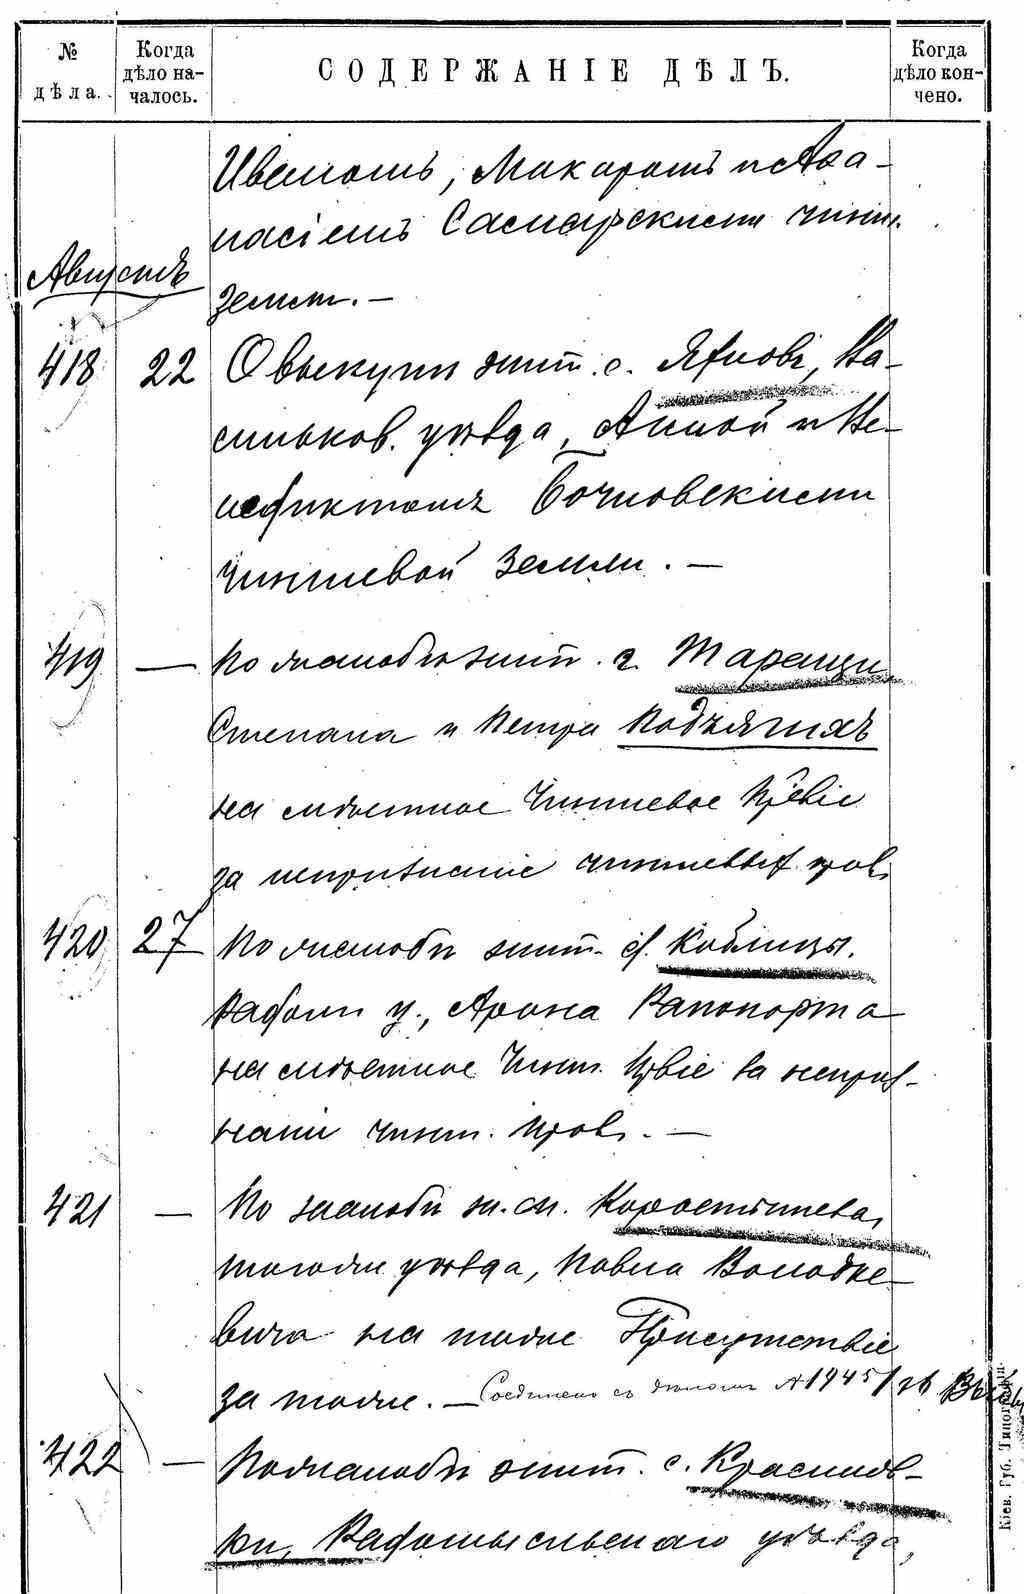 № дѣла.
Когда дѣло на-
чалось.
СОДЕРЖАНІЕ ДѢЛЪ.
Когда
дѣло кон-
чено.
Иваномъ, Макаромъ и Афа-
насіемъ чинш.
Августъ
земли. —
418 22 О выкупѣ жит. с. Яхновъ, Ва-
сильков. уѣзда, Анной и Бе-
недиктомъ Бочковскими
чиншевой земли. —
419 — По жалобѣ жит. г. Таращи
Степана и Петра Подъягихъ
на мѣстное Чиншевое Пр-віе
за непризнаніе чиншевых прав.
420 27 По жалобѣ жит. с. Коблицы.
Радом. у., Арона Рапопорта
на мѣстное Чинш. Пр-віе за неприз-
наніе чинш. прав. —
421 — По жалобѣ ж. м. Коростышева,
того же уѣзда, Павла Володке-
вича на тоже Присутствіе
за тоже. — Соединено съ дѣломъ № 1945/
422 — По жалобѣ жит. с. Красилов-
ки, Радомысльскаго уѣзда,
Кіев. Губ. Типографія.